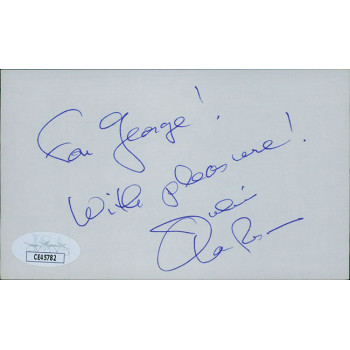 For George!
With pleasure!
CE45782